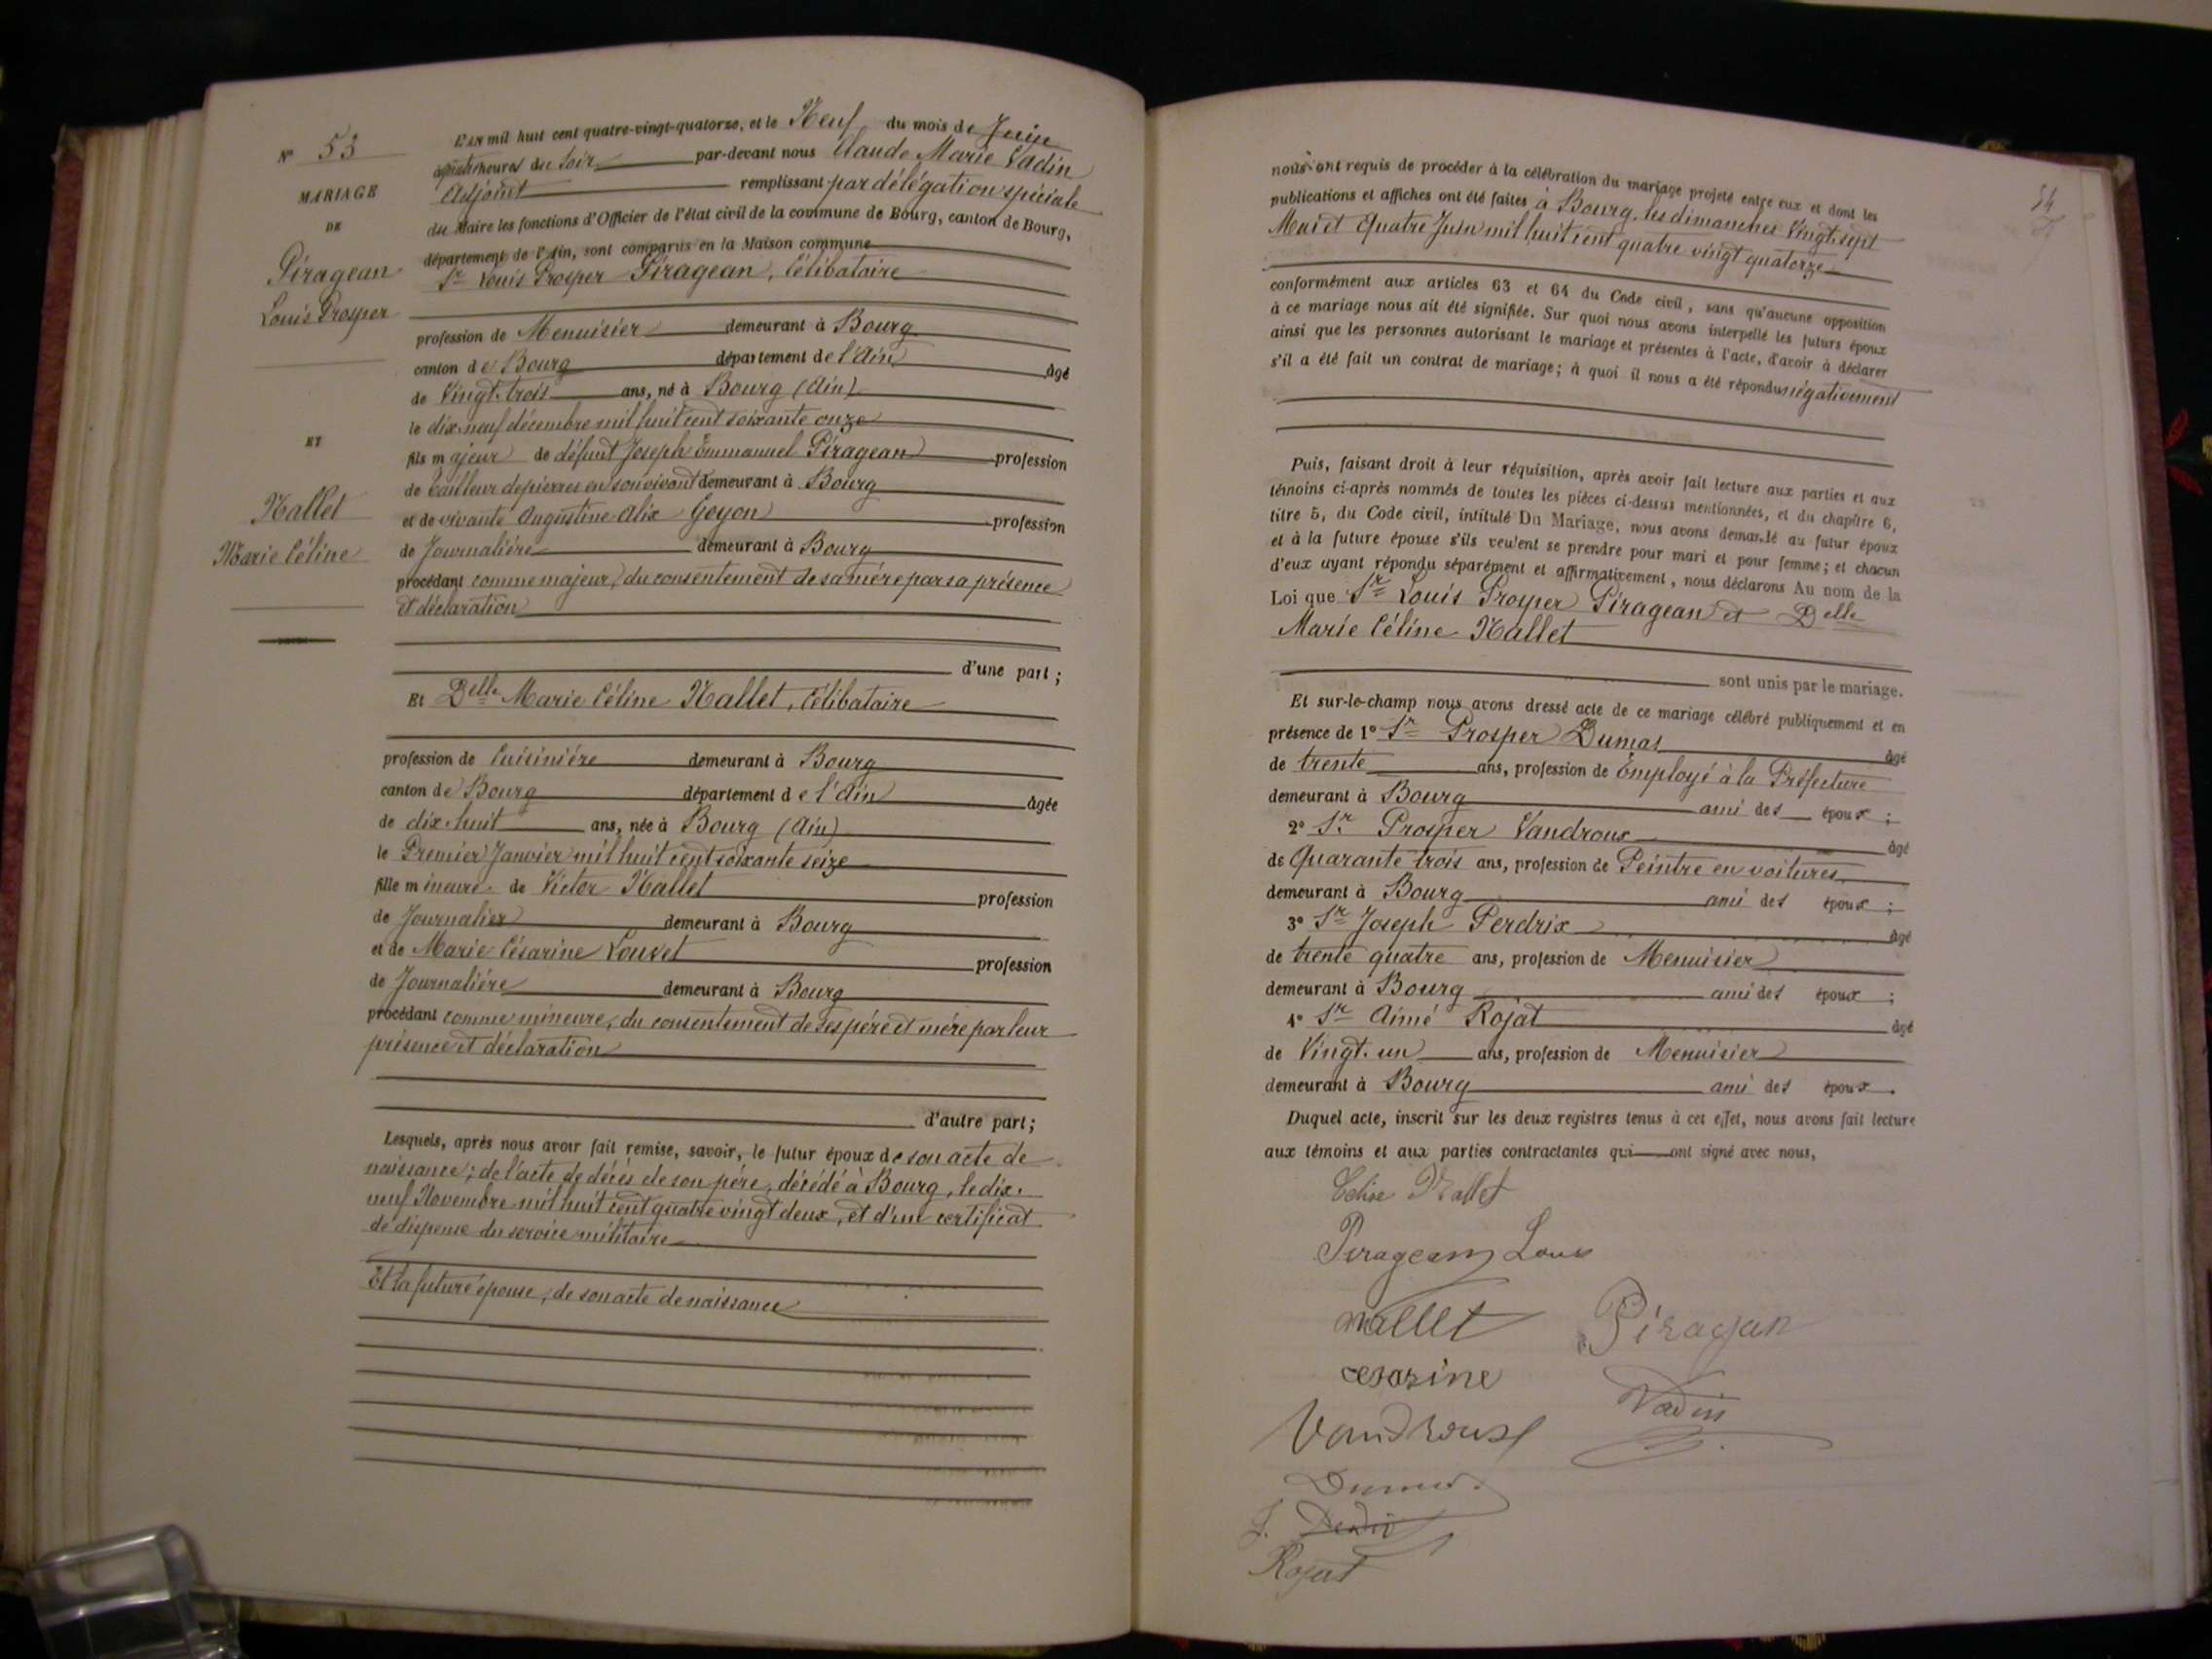 N° 53
MARIAGE
DE
Piragean
Louis Prosper
ET
Nallet
Marie Céline
L'AN mil huit cent quatre-vingt-quatorze, et le Neuf du mois de Juin
à quatre heures du Soir par-devant nous Claude Marie Vadin
Adjoint remplissant par délégation spéciale
du Maire les fonctions d'Officier de l'état civil de la commune de Bourg, canton de Bourg,
département de l'Ain, sont comparus en la Maison commune
Sr Louis Prosper Piragean, Célibataire
profession de Menuisier demeurant à Bourg
canton de Bourg département de l'Ain âgé
de Vingt-trois ans, né à Bourg (Ain)
le dix-neuf décembre mil huit cent soixante onze
fils majeur de défunt Joseph Emmanuel Piragean profession
de Tailleur de pierres en son vivant demeurant à Bourg
et de vivante Augustine Alix Goyon profession
de Journalière demeurant à Bourg
procédant comme majeur, du consentement de sa mère par sa présence
et déclaration
d'une part ;
Et Delle Marie Céline Nallet, Célibataire
profession de Cuisinière demeurant à Bourg
canton de Bourg département de l'Ain âgée
de dix-huit ans, née à Bourg (Ain)
le Premier Janvier mil huit cent soixante seize
fille mineure de Victor Nallet profession
de Journalier demeurant à Bourg
et de Marie Césarine Louvet profession
de Journalière demeurant à Bourg
procédant comme mineure, du consentement de ses père et mère par leur
présence et déclaration
d'autre part ;
Lesquels, après nous avoir fait remise, savoir, le futur époux de son acte de
naissance ; de l'acte de décès de son père, décédé à Bourg, le dix-
neuf Novembre mil huit cent quatre vingt deux, et d'un certificat
de dispense du service militaire
Et la future épouse, de son acte de naissance
54
nous ont requis de procéder à la célébration du mariage projeté entre eux et dont les
publications et affiches ont été faites à Bourg, les dimanches Vingt-sept
Mai et Quatre Juin mil huit cent quatre vingt quatorze
conformément aux articles 63 et 64 du Code civil, sans qu'aucune opposition
à ce mariage nous ait été signifiée. Sur quoi nous avons interpellé les futurs époux
ainsi que les personnes autorisant le mariage et présentes à l'acte, d'avoir à déclarer
s'il a été fait un contrat de mariage ; à quoi il nous a été répondu négativement
Puis, faisant droit à leur réquisition, après avoir fait lecture aux parties et aux
témoins ci-après nommés de toutes les pièces ci-dessus mentionnées, et du chapitre 6,
titre 5, du Code civil, intitulé Du Mariage, nous avons demandé au futur époux
et à la future épouse s'ils veulent se prendre pour mari et pour femme ; et chacun
d'eux ayant répondu séparément et affirmativement, nous déclarons Au nom de la
Loi que Sr Louis Prosper Piragean et Delle
Marie Céline Nallet
sont unis par le mariage.
Et sur-le-champ nous avons dressé acte de ce mariage célébré publiquement et en
présence de 1° Sr Prosper Dumas âgé
de trente ans, profession de Employé à la Préfecture
demeurant à Bourg ami des époux ;
2° Sr Prosper Vandroux âgé
de Quarante trois ans, profession de Peintre en voitures
demeurant à Bourg ami des époux ;
3° Sr Joseph Perdrix âgé
de trente quatre ans, profession de Menuisier
demeurant à Bourg ami des époux ;
4° Sr Aimé Rojat âgé
de Vingt-un ans, profession de Menuisier
demeurant à Bourg ami des époux.
Duquel acte, inscrit sur les deux registres tenus à cet effet, nous avons fait lecture
aux témoins et aux parties contractantes qui ont signé avec nous,
Céline Nallet
Piragean Louis
nallet Piragan
cesarine
Vadin
Vandroux
Dumas
J. Perdrix
Rojat